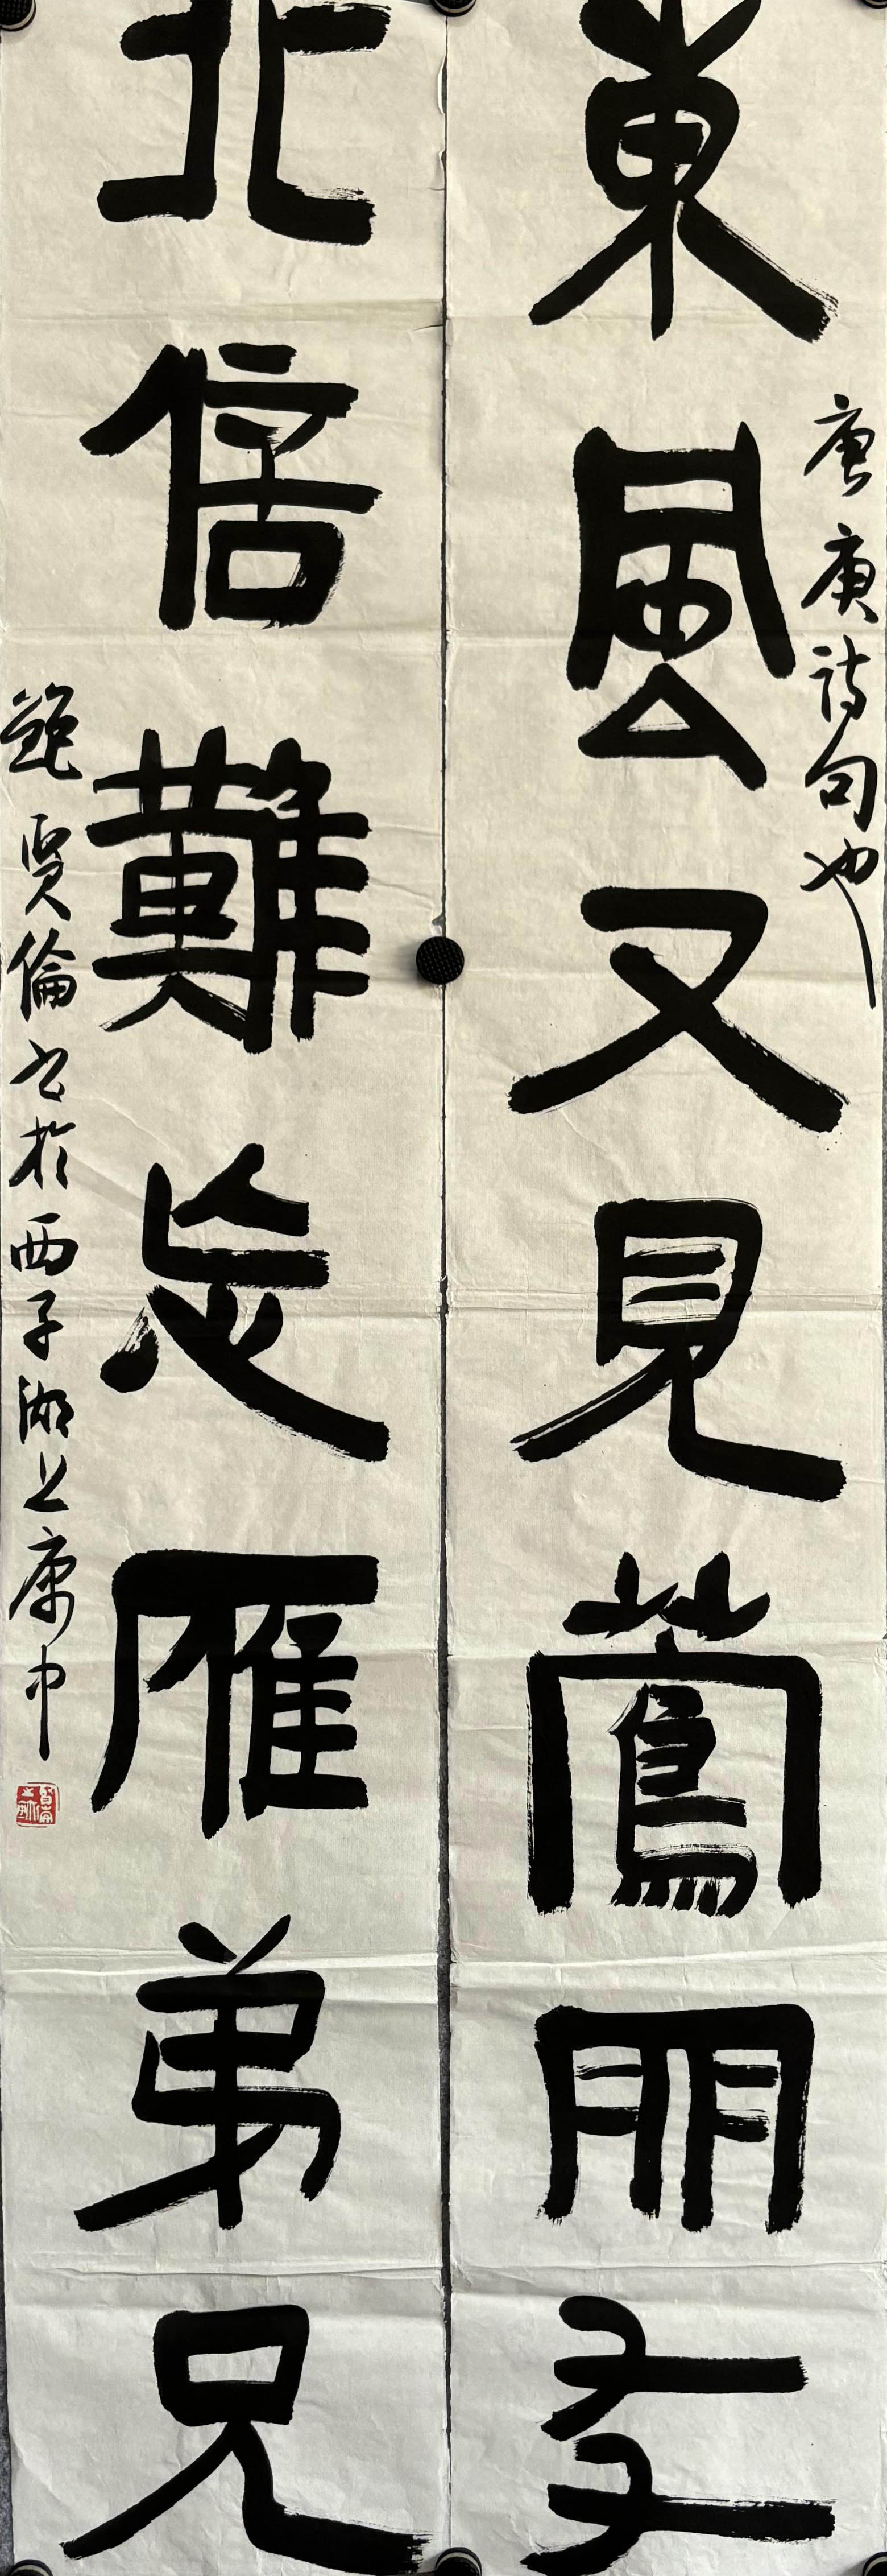 唐庚詩句也
東風又見鶯朋友
北信難忘雁弟兄
鮑賢倫书於西子湖上